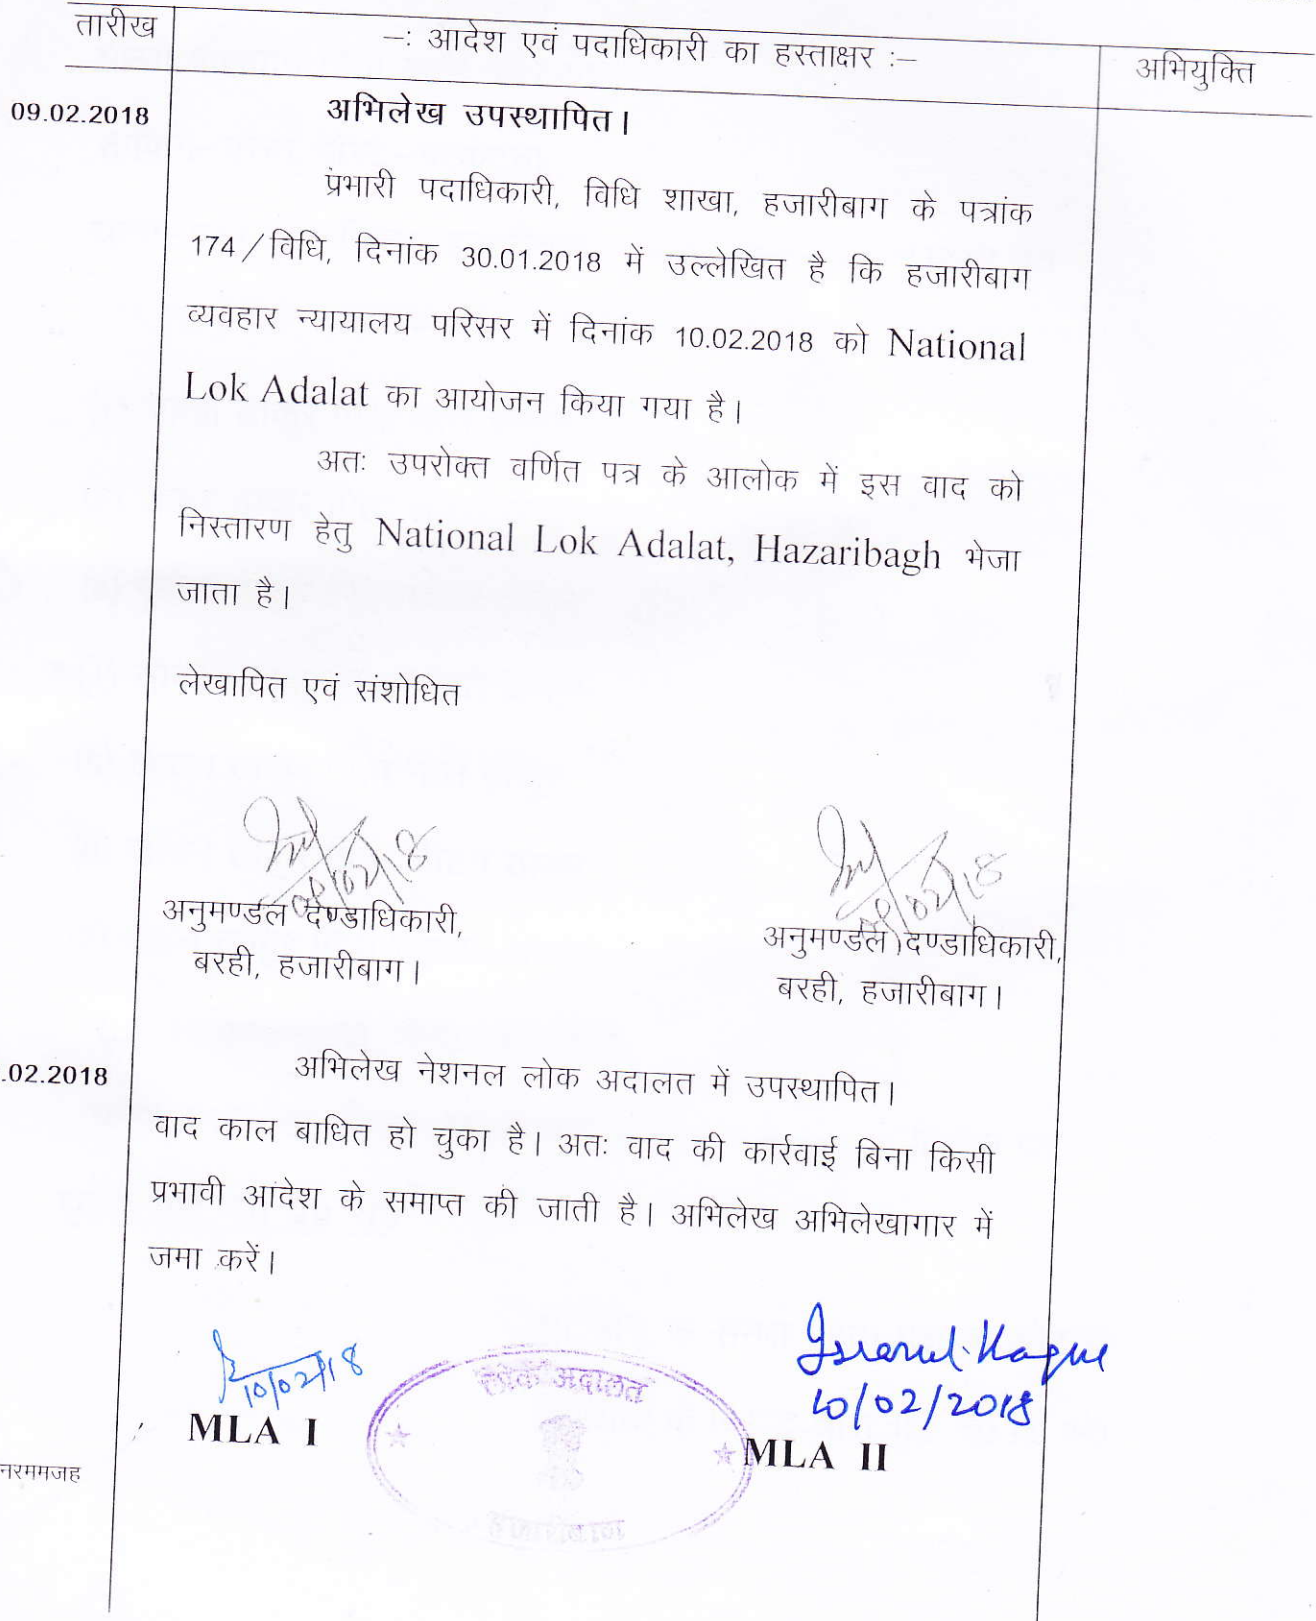 तारीख
–: आदेश एवं पदाधिकारी का हस्ताक्षर :–
अभियुक्ति
09.02.2018
अभिलेख उपस्थापित।
प्रभारी पदाधिकारी, विधि शाखा, हजारीबाग के पत्रांक
174/विधि, दिनांक 30.01.2018 में उल्लेखित है कि हजारीबाग
व्यवहार न्यायालय परिसर में दिनांक 10.02.2018 को National
Lok Adalat का आयोजन किया गया है।
अतः उपरोक्त वर्णित पत्र के आलोक में इस वाद को
निस्तारण हेतु National Lok Adalat, Hazaribagh भेजा
जाता है।
लेखापित एवं संशोधित
09/02/18
09/02/18
अनुमण्डल दण्डाधिकारी,
बरही, हजारीबाग।
अनुमण्डल दण्डाधिकारी,
बरही, हजारीबाग।
.02.2018
अभिलेख नेशनल लोक अदालत में उपस्थापित।
वाद काल बाधित हो चुका है। अतः वाद की कार्रवाई बिना किसी
प्रभावी आदेश के समाप्त की जाती है। अभिलेख अभिलेखागार में
जमा करें।
10/02/18
MLA I
लोक अदालत
हजारीबाग
Israrul Haque
10/02/2018
MLA II
नरममजह